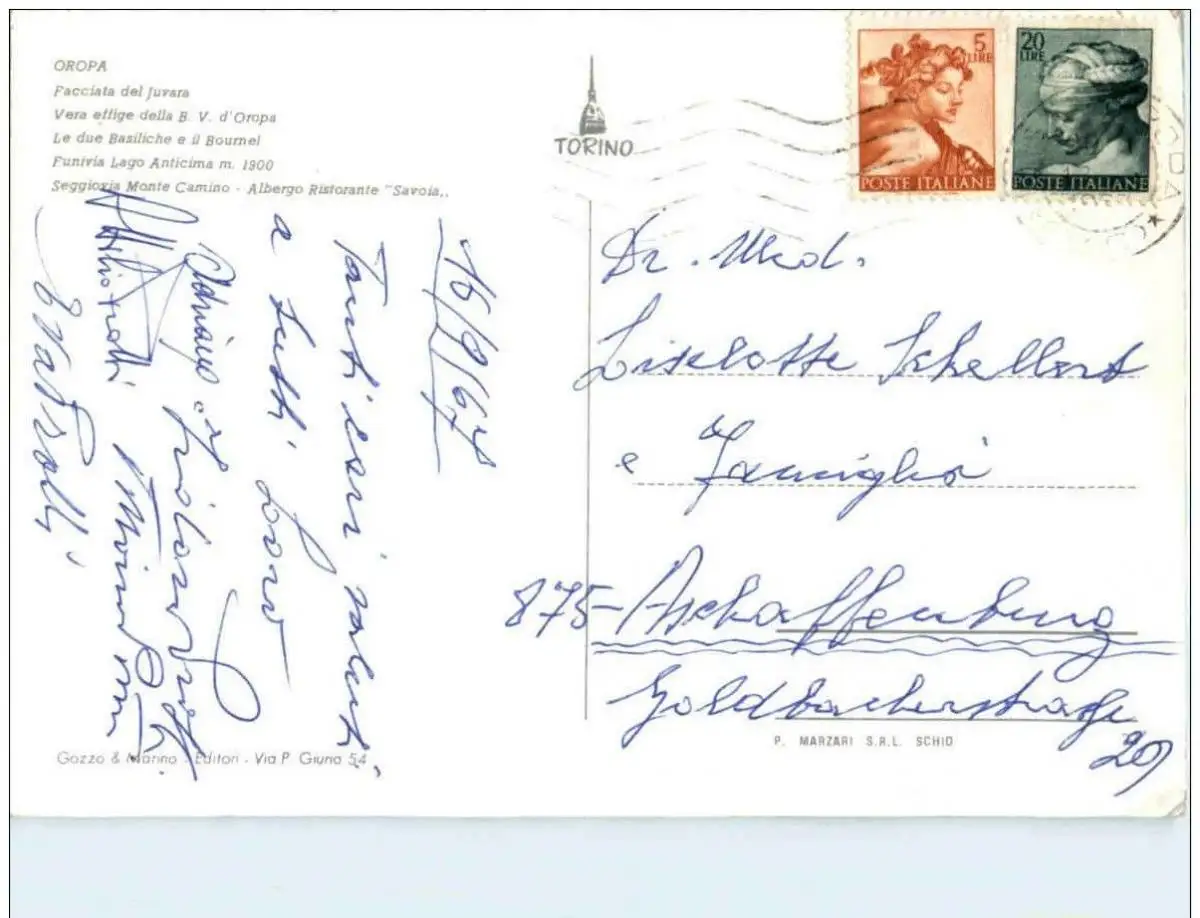 OROPA
Facciata del Juvara
Vera effige della B. V. d'Oropa
Le due Basiliche e il Bournel
Funivia Lago Anticima m. 1900
Seggiovia Monte Camino - Albergo Ristorante "Savoia,,
TORINO
5 LIRE
POSTE ITALIANE
20 LIRE
POSTE ITALIANE
16/9/67
Tanti cari saluti
a tutti Loro
Adriano
Dr. Med.
Liselotte Schellert
e Famiglia
875-Aschaffenburg
Goldbacherstraße
29
Gozzo & Marino - Editori - Via P. Giuria 54
P. MARZARI S.R.L. SCHIO